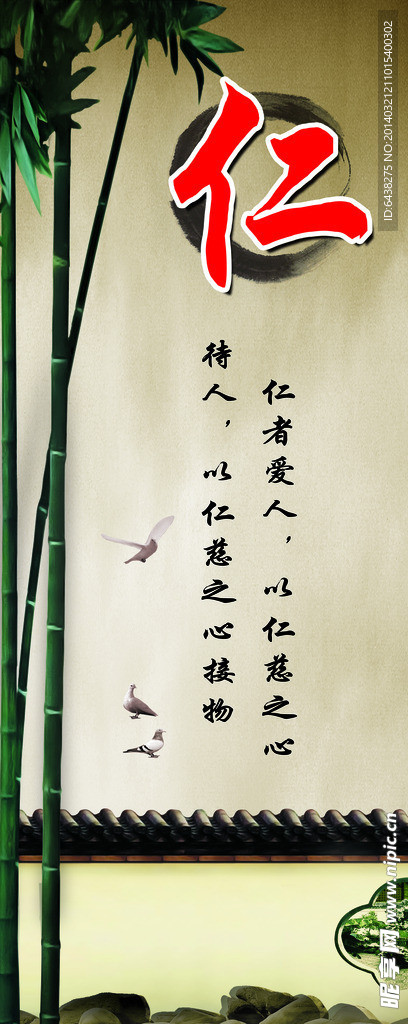 仁
仁者爱人，以仁慈之心
待人，以仁慈之心接物
ID:6438275 NO:20140321211015400302
昵享网 www.nipic.cn